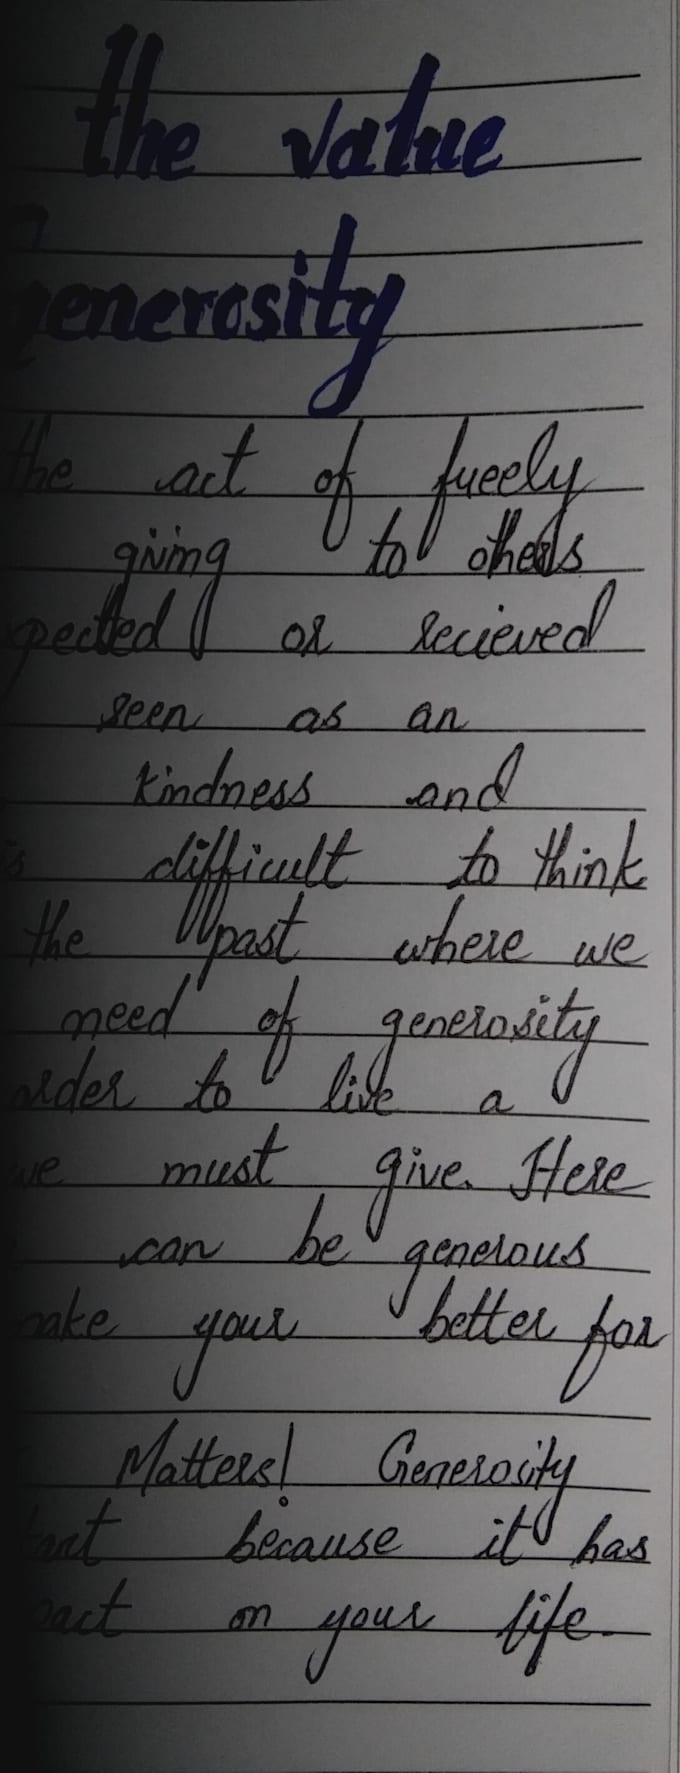 the value
generosity
the act of freely
giving to others
pected or recieved
seen as an
kindness and
is difficult to think
the past where we
need of generosity
order to live a
we must give. Here
can be generous
make your better for
Matters! Generosity
tant because it has
pact on your life.